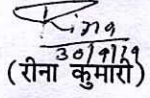 Rina
30/9/19
(रीना कुमारी)